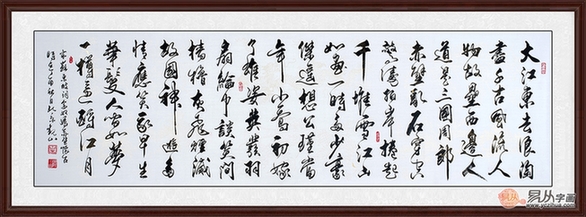 大江東去浪淘
盡千古風流人
物故壘西邊人
道是三國周郎
赤壁亂石穿空
驚濤拍岸捲起
千堆雪江山
如畫一時多少豪
傑遙想公瑾當
年小喬初嫁
了雄姿英發羽
扇綸巾談笑間
檣櫓灰飛煙滅
故國神遊多
情應笑我早生
華髮人如夢
一樽還酹江月
易从字画
www.yizihua.com